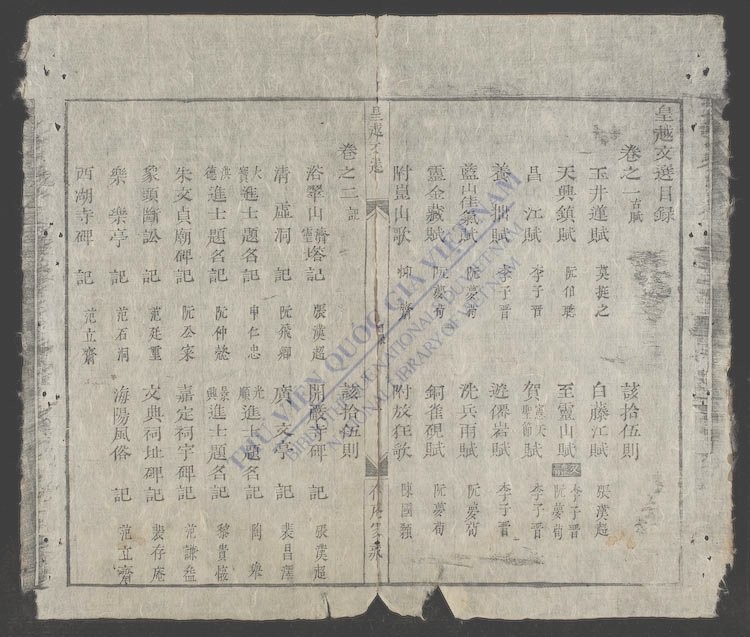 皇越文選目録
卷之一 古賦 該拾伍則
玉井蓮賦 莫挺之 白藤江賦 張漢超
天興鎮賦 阮伯聰 至靈山賦 李子晋 阮夢荀
昌江賦 李子晋 賀 賦 李子晋
養 賦 李子晋 遊僊岩賦 李子晋
藍山佳氣賦 阮夢荀 洗兵雨賦 阮夢荀
靈金藏賦 阮夢荀 銅雀硯賦 阮夢荀
附崑山歌 齋 附放狂歌 陳國
皇越文選
卷之二 記 該拾伍則
浴翠山靈濟塔記 張漢超 開嚴寺碑記 張漢超
清虛洞記 阮飛卿 廣文亭記 裴昌澤
大寶進士題名記 申仁忠 光順進士題名記 陶舉
洪德進士題名記 阮仲 景興進士題名記 黎貴惇
朱文貞廟碑記 阮公寀 嘉定祠宇碑記 范謙益
象頭斷訟記 范廷重 文典祠址碑記 裴存庵
衆樂亭記 范石洞 海陽風俗記 范立齋
西湖寺碑 范立齋
THƯ VIỆN QUỐC GIA VIỆT NAM
BIBLIOTHÈQUE NATIONALE DU VIETNAM
NATIONAL LIBRARY OF VIETNAM